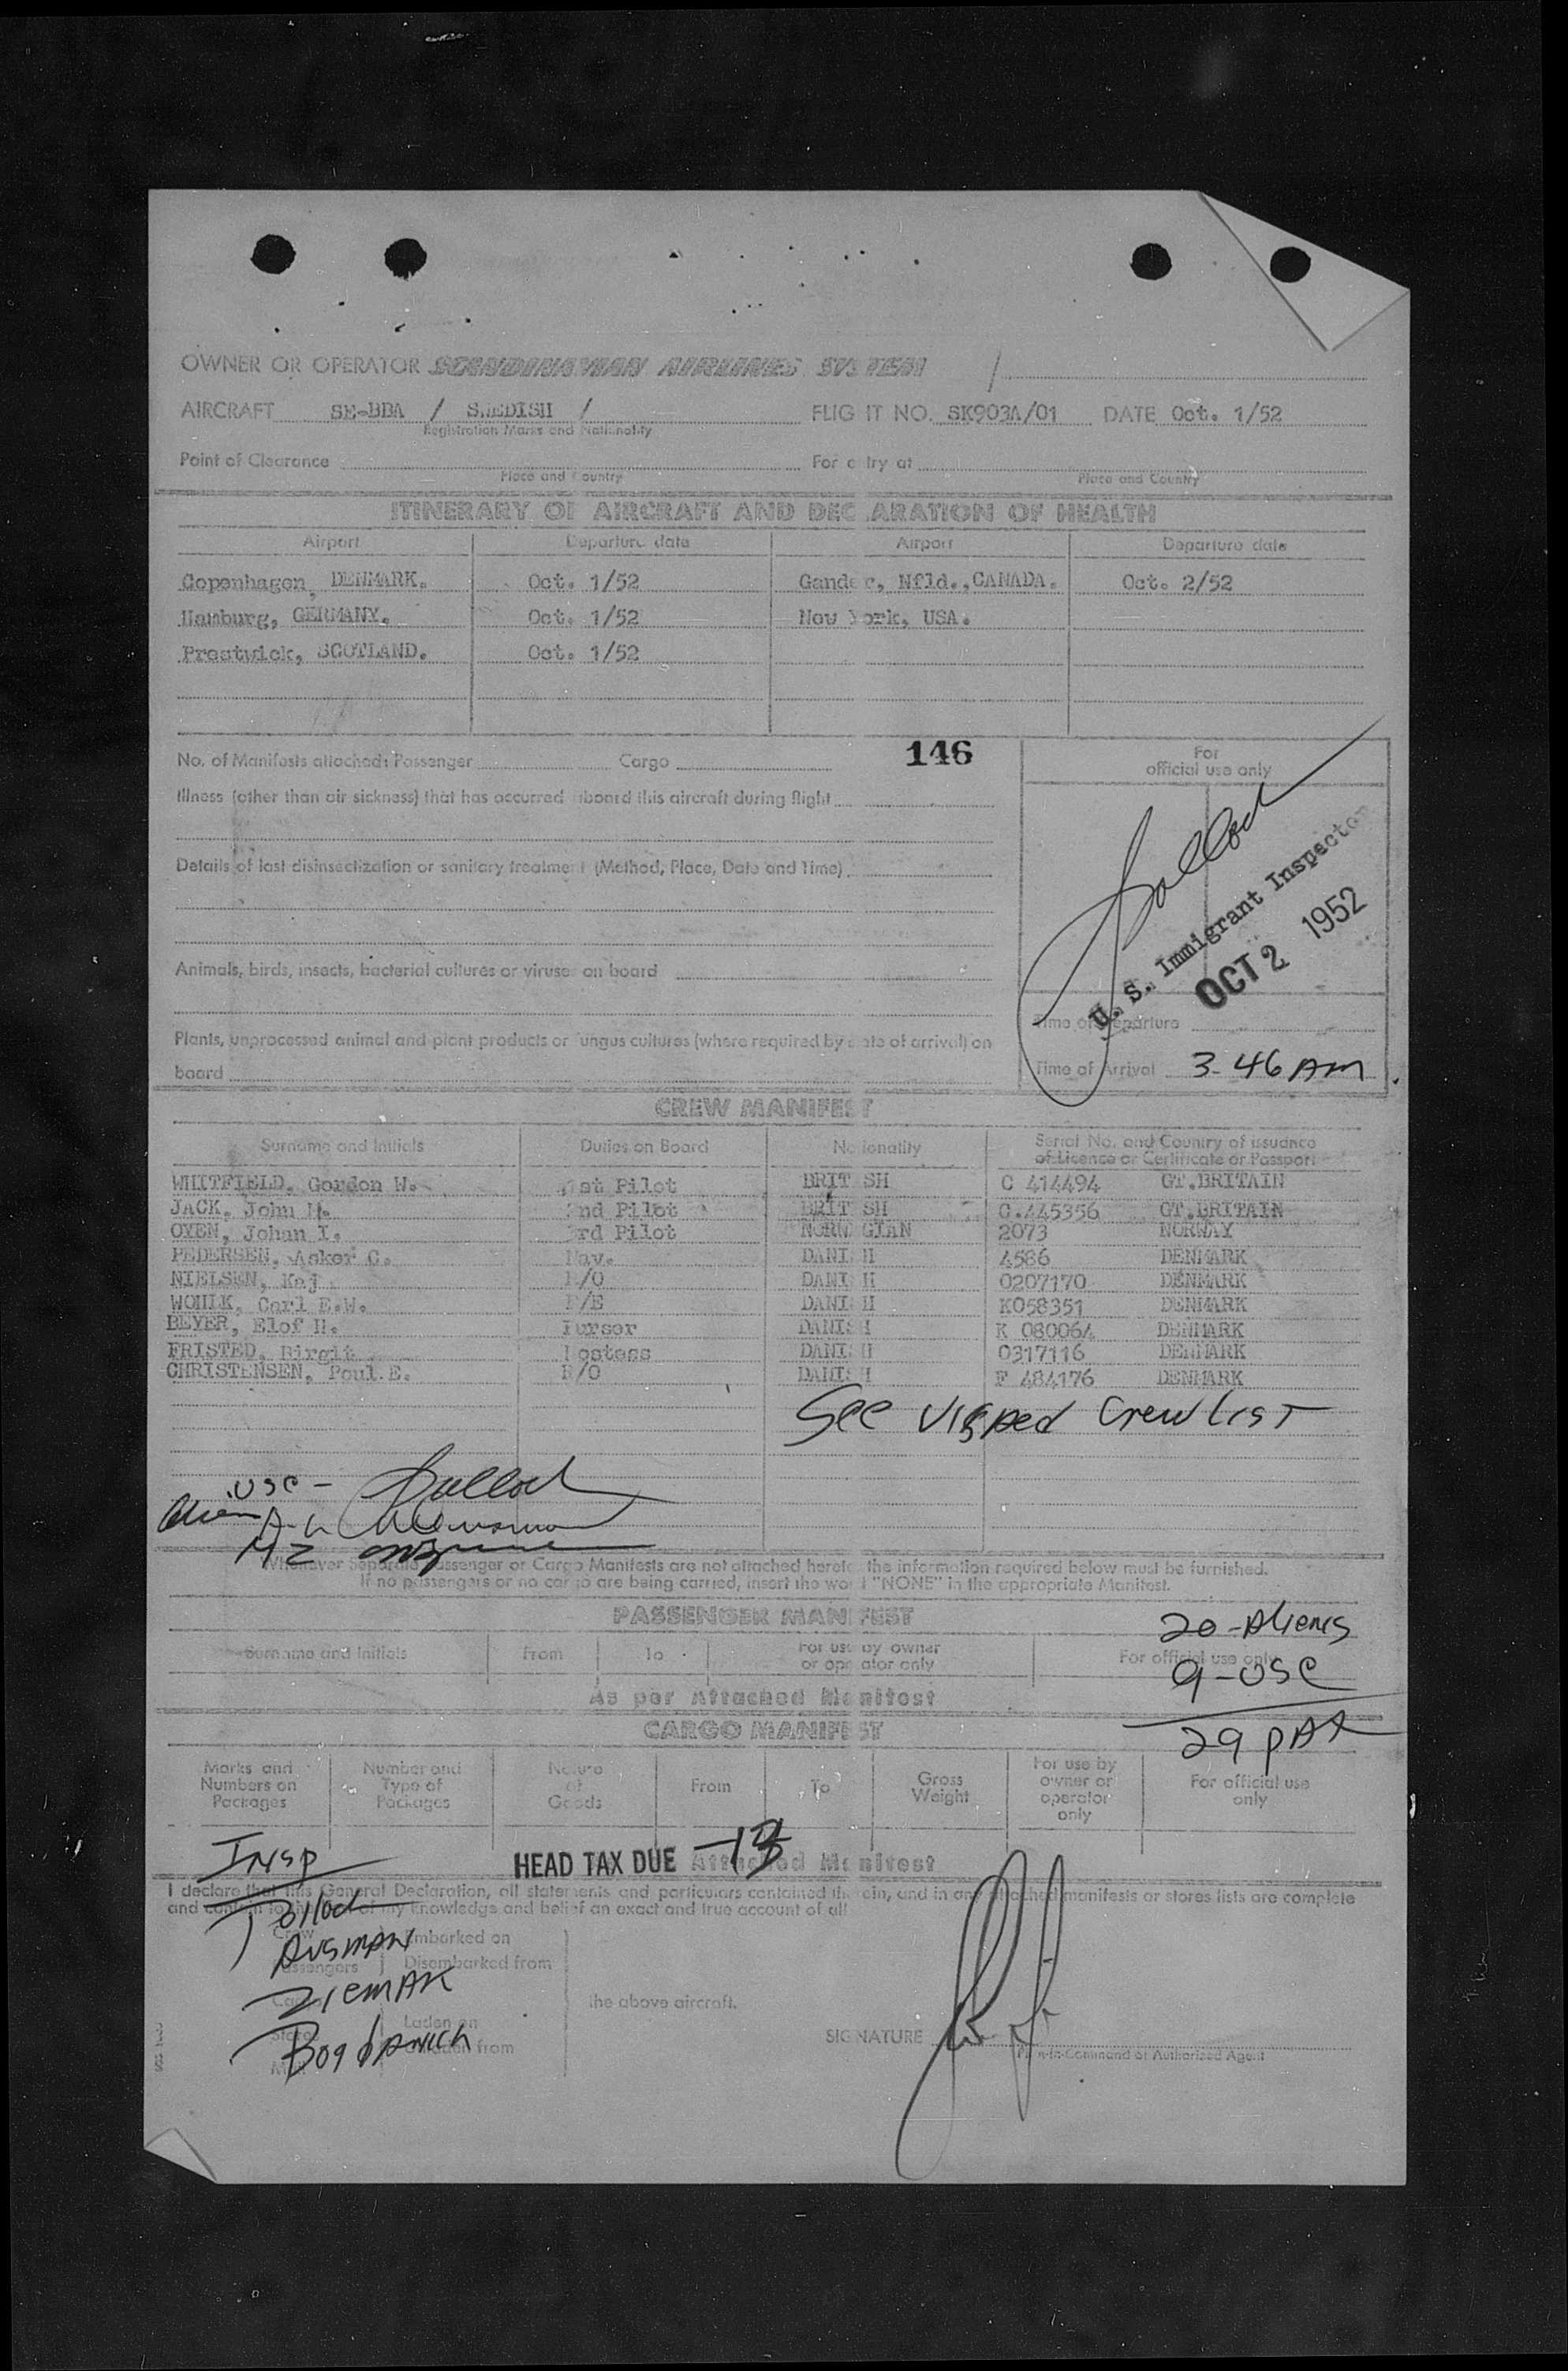 OWNER OR OPERATOR SCANDINAVIAN AIRLINES SYSTEM /
AIRCRAFT SE-BBA / SWEDISH / FLIGHT NO. SK903A/01 DATE Oct. 1/52
Registration Marks and Nationality
Point of Clearance For entry at
Place and Country Place and Country
ITINERARY OF AIRCRAFT AND DECLARATION OF HEALTH
Airport Departure date Airport Departure date
Copenhagen, DENMARK. Oct. 1/52 Gander, Nfld., CANADA. Oct. 2/52
Hamburg, GERMANY. Oct. 1/52 New York, USA.
Prestwick, SCOTLAND. Oct. 1/52
No. of Manifests attached: Passenger Cargo 146
For
official use only
Illness (other than air sickness) that has occurred aboard this aircraft during flight
Details of last disinsectization or sanitary treatment (Method, Place, Date and Time)
U. S. Immigrant Inspector
OCT 2 1952
Animals, birds, insects, bacterial cultures or viruses on board
Time of Departure
Plants, unprocessed animal and plant products or fungus cultures (where required by state of arrival) on
board
Time of Arrival 3-46 AM.
CREW MANIFEST
Surname and Initials Duties on Board Nationality Serial No. and Country of issuance
of Licence or Certificate or Passport
WHITFIELD, Gordon W. 1st Pilot BRITISH C 414494 GT.BRITAIN
JACK, John H. 2nd Pilot BRITISH C.445356 GT.BRITAIN
OYEN, Johan I. 3rd Pilot NORWEGIAN 2073 NORWAY
PEDERSEN, Asker C. Nav. DANISH 4586 DENMARK
NIELSEN, Kaj R/O DANISH 0207170 DENMARK
WOHLK, Carl E.W. F/E DANISH K058351 DENMARK
BEYER, Elof H. Purser DANISH K 080064 DENMARK
FRISTED, Birgit Hostess DANISH 0317116 DENMARK
CHRISTENSEN, Poul E. R/O DANISH F 484176 DENMARK
See visaed Crew List
USC -
Alien
Whenever Separate Passenger or Cargo Manifests are not attached hereto the information required below must be furnished.
If no passengers or no cargo are being carried, insert the word "NONE" in the appropriate Manifest.
PASSENGER MANIFEST
20-Aliens
Surname and Initials From To For use by owner
or operator only For official use only
9-USC
As per Attached Manifest
CARGO MANIFEST
29 PAX
Marks and
Numbers on
Packages Number and
Type of
Packages Nature
of
Goods From To Gross
Weight For use by
owner or
operator
only For official use
only
Insp
HEAD TAX DUE Attached Manifest
I declare that this General Declaration, all statements and particulars contained therein, and in any attached manifests or stores lists are complete
and contain to the best of my knowledge and belief an exact and true account of all
Crew Embarked on
Passengers Disembarked from
Ausman
Ziemak
Cargo
the above aircraft.
Stores Laden on
Unladen from
Mail
SIGNATURE
Pilot-in-Command or Authorized Agent